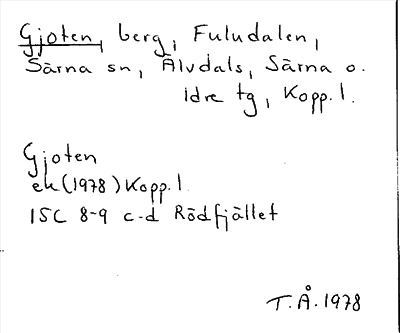 Gjoten, berg, Fuludalen,
Särna sn, Älvdals, Särna o.
Idre tg, Kopp.l.
Gjoten
ek (1978) Kopp.l
15C 8-9 c-d Rödfjället
T.Å. 1978